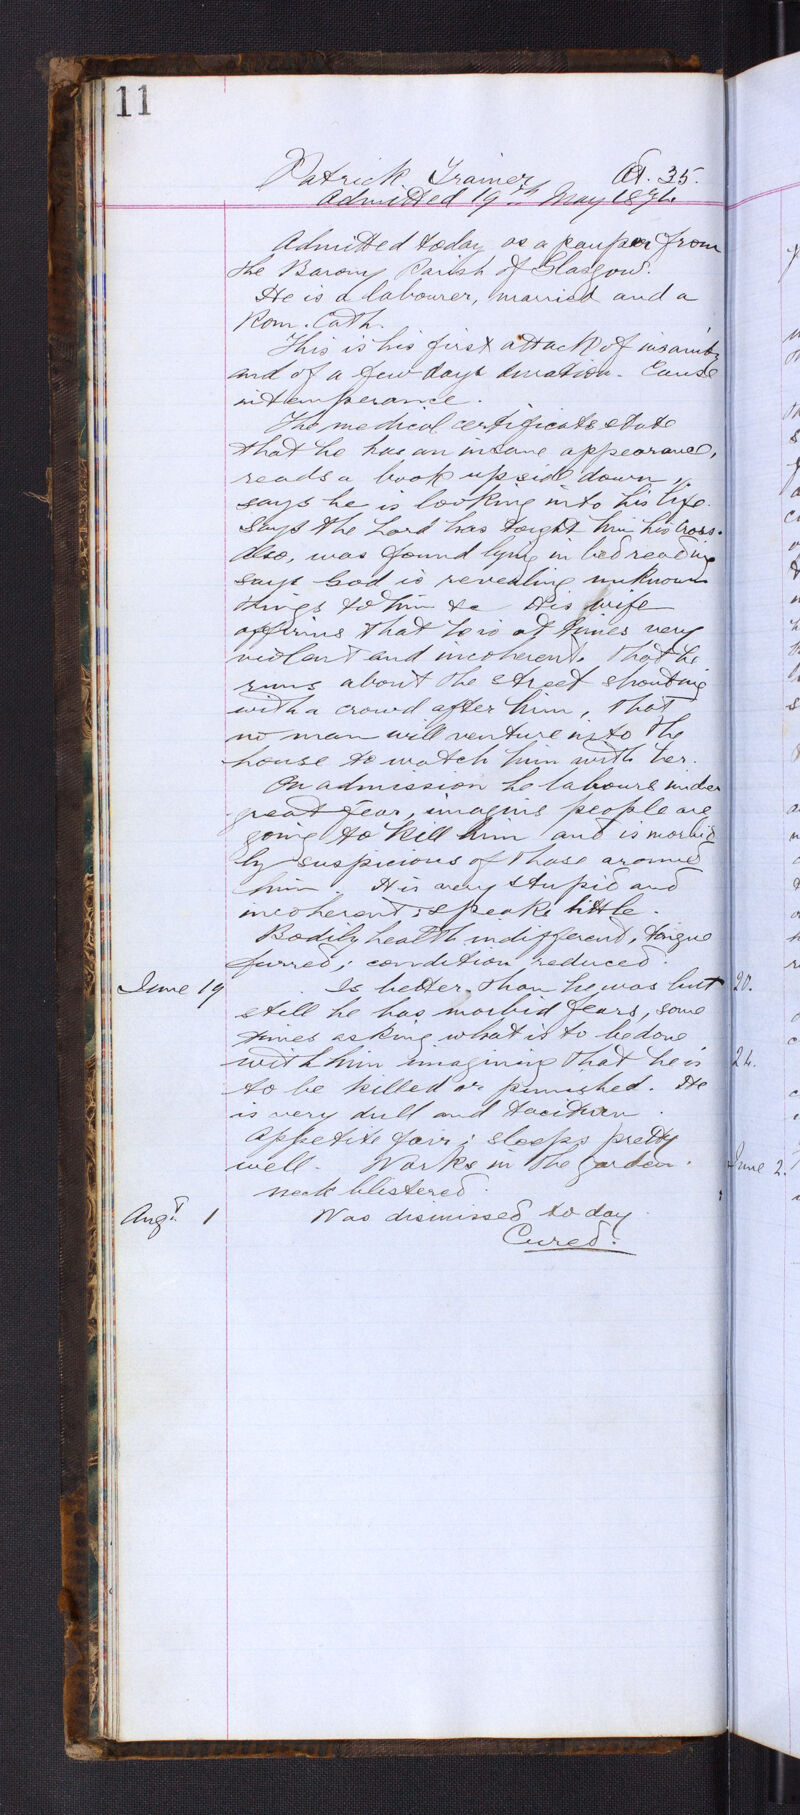 11
Patrick Trainer Æt. 35.
Admitted 19th May 1874
Admitted today as a pauper from
the Barony Parish of Glasgow.
He is a labourer, married and a
Rom. Cath.
This is his first attack of insanity
and of a few days duration. Cause
intemperance.
The medical certificates state
that he has an insane appearance,
reads a book upside down,
says he is looking into his life.
Says the Lord has taught him his Cross.
Also, was found lying in bed reading
says God is revealing unknown
things to him &c His wife
affirms that he is at times very
violent and incoherent. That he
runs about the street shouting
with a crowd after him, that
no man will venture into the
house to watch him with her.
On admission he labours under
great fear, imagins people are
going to kill him and is morbid
ly suspicious of those around
him. He is very stupid and
incoherent; speaks little.
Bodily health indifferent, tongue
furred; condition reduced.
June 19 Is better than he was but
still he has morbid fears, some
times asking what is to be done
with him imagining that he is
to be killed or punished. He
is very dull and taciturn.
Appetite fair; sleeps pretty
well. Works in the garden.
Neck blistered.
Augt. 1 Was dismissed today.
Cured.
20.
24.
June 2.